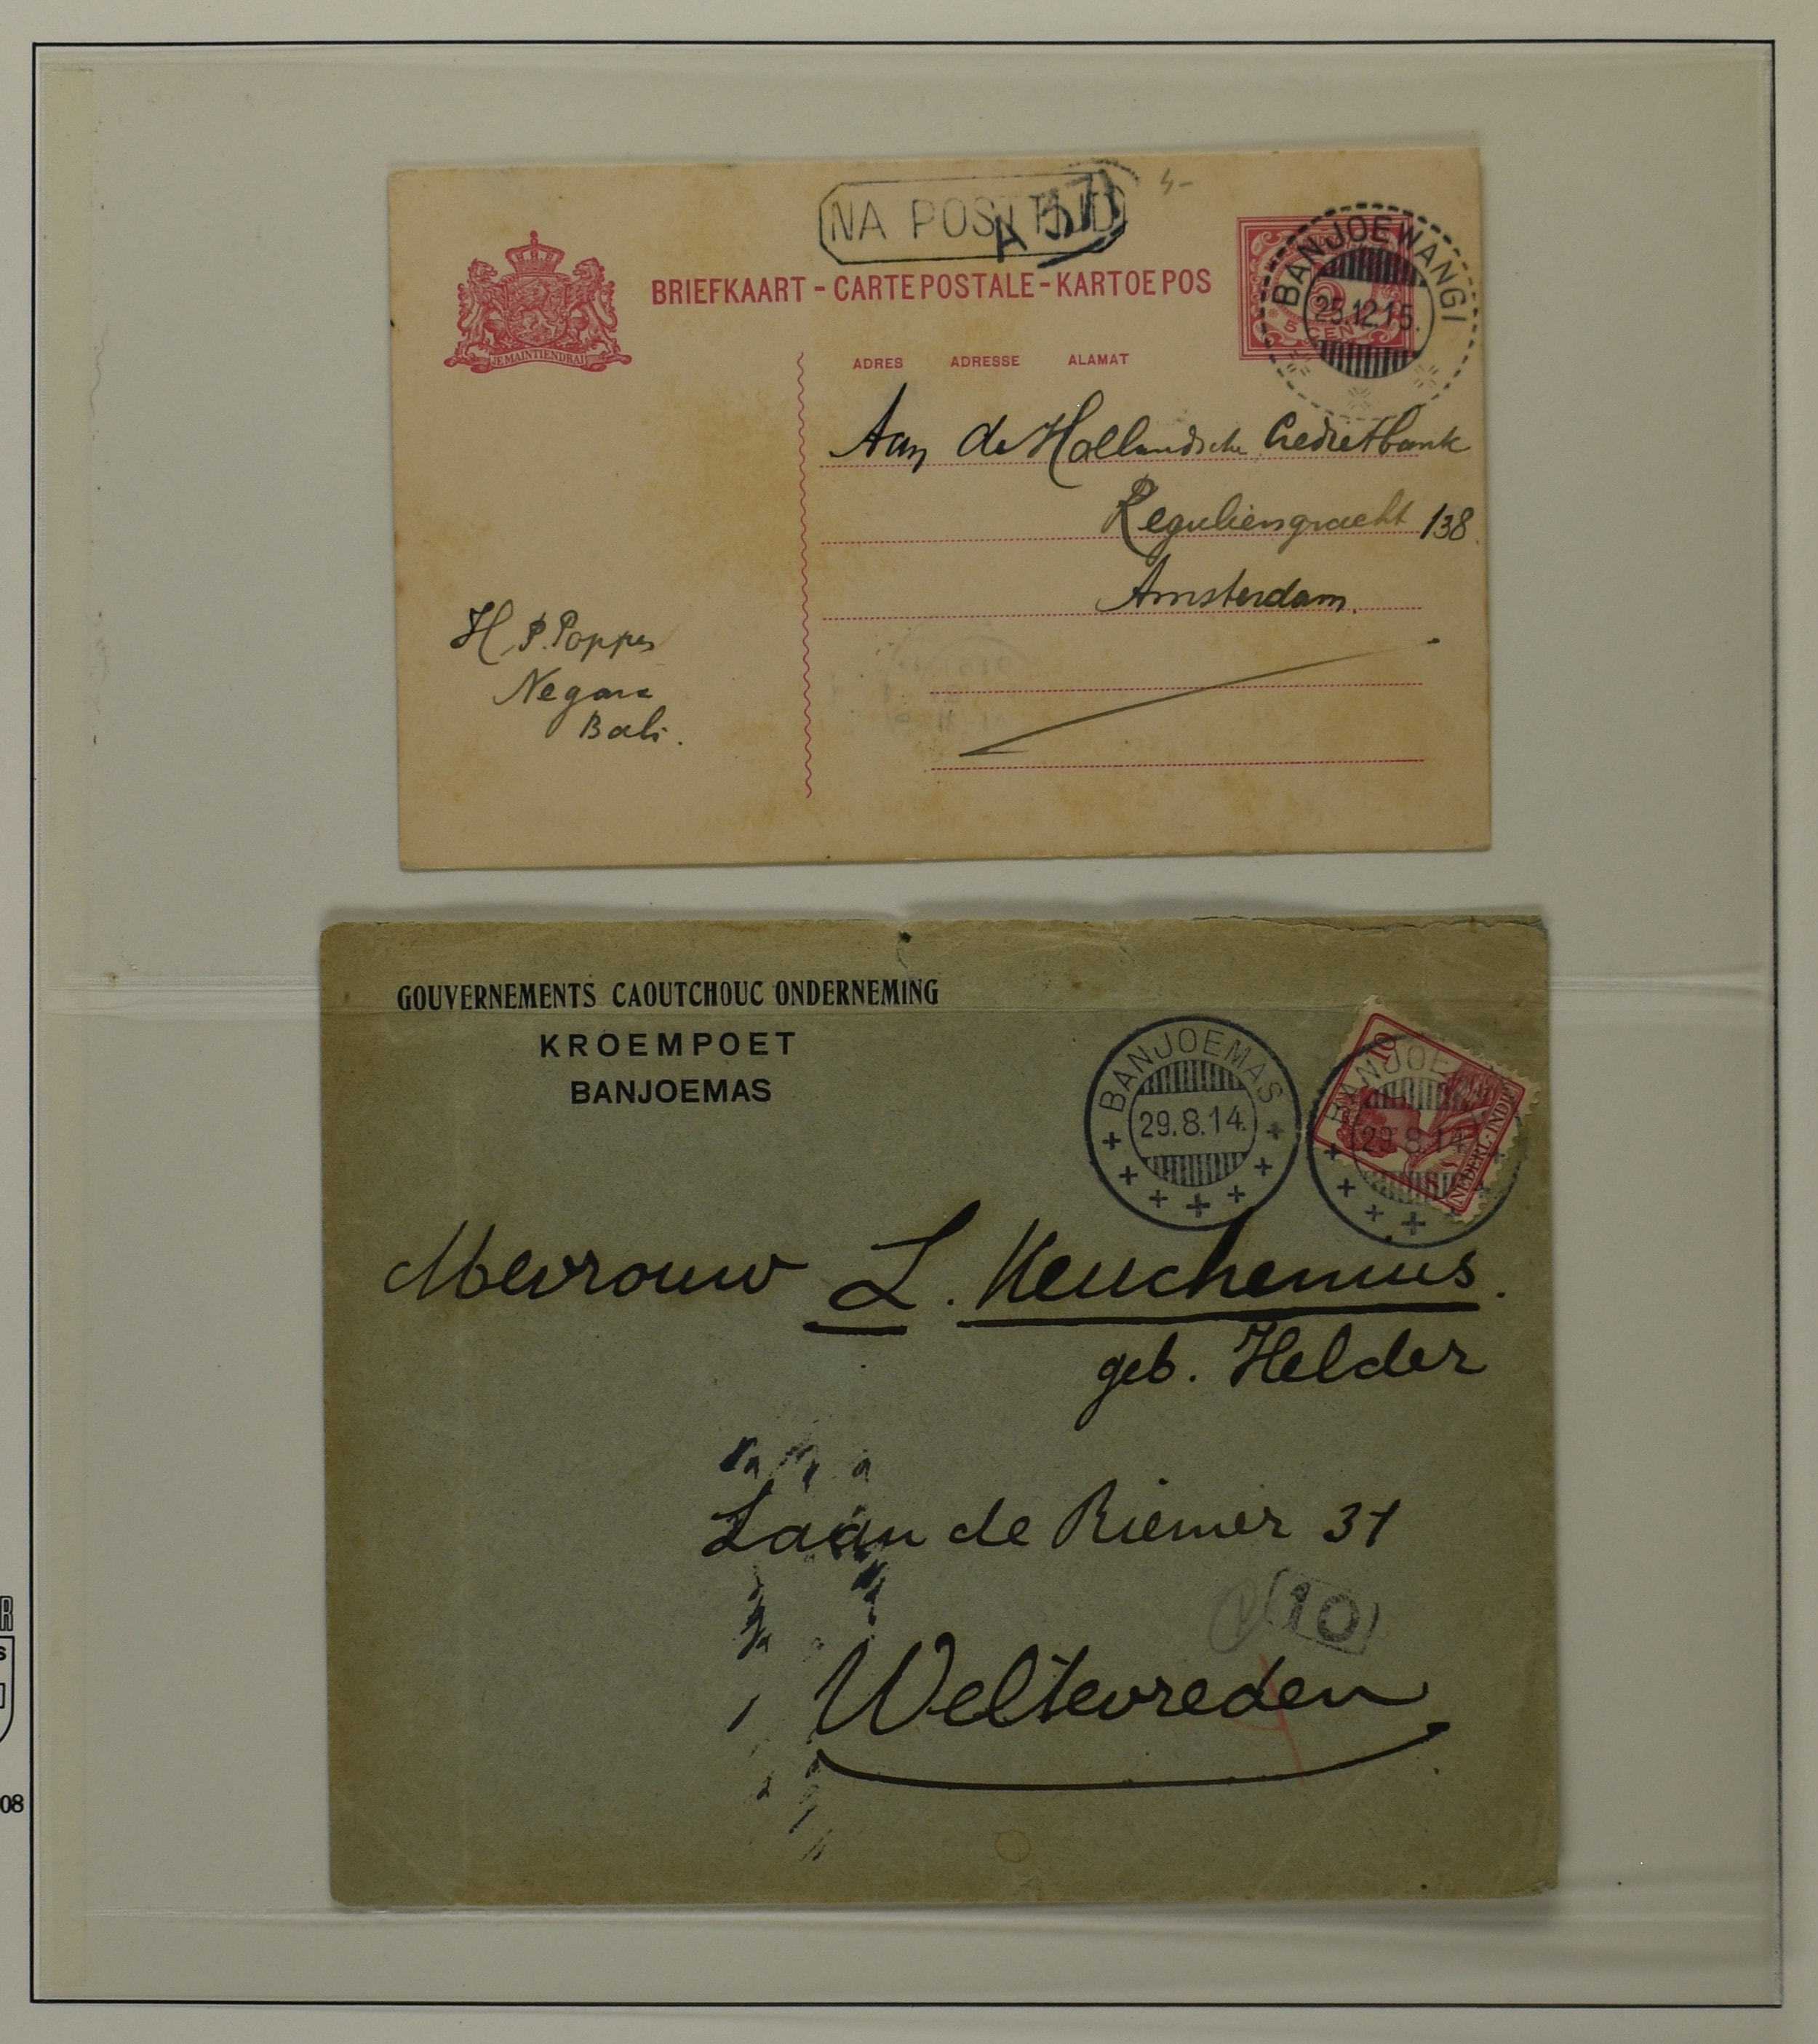 NA POSTTIJD
A 571
BRIEFKAART - CARTE POSTALE - KARTOE POS
JE MAINTIENDRAI
BANJOEWANGI
25.12.15.
5 CENT
ADRES ADRESSE ALAMAT
Aan de Hollandsche Credietbank
Reguliersgracht 138.
Amsterdam.
H. P. Poppes
Negara
Bali.
GOUVERNEMENTS CAOUTCHOUC ONDERNEMING
KROEMPOET
BANJOEMAS
BANJOEMAS
29.8.14.
BANJOEMAS
29.8.14
10
NEDERL-INDIË
Mevrouw L. Keuchenius.
geb. Helder
Laan de Riemer 31
10
Weltevreden
R
S
08